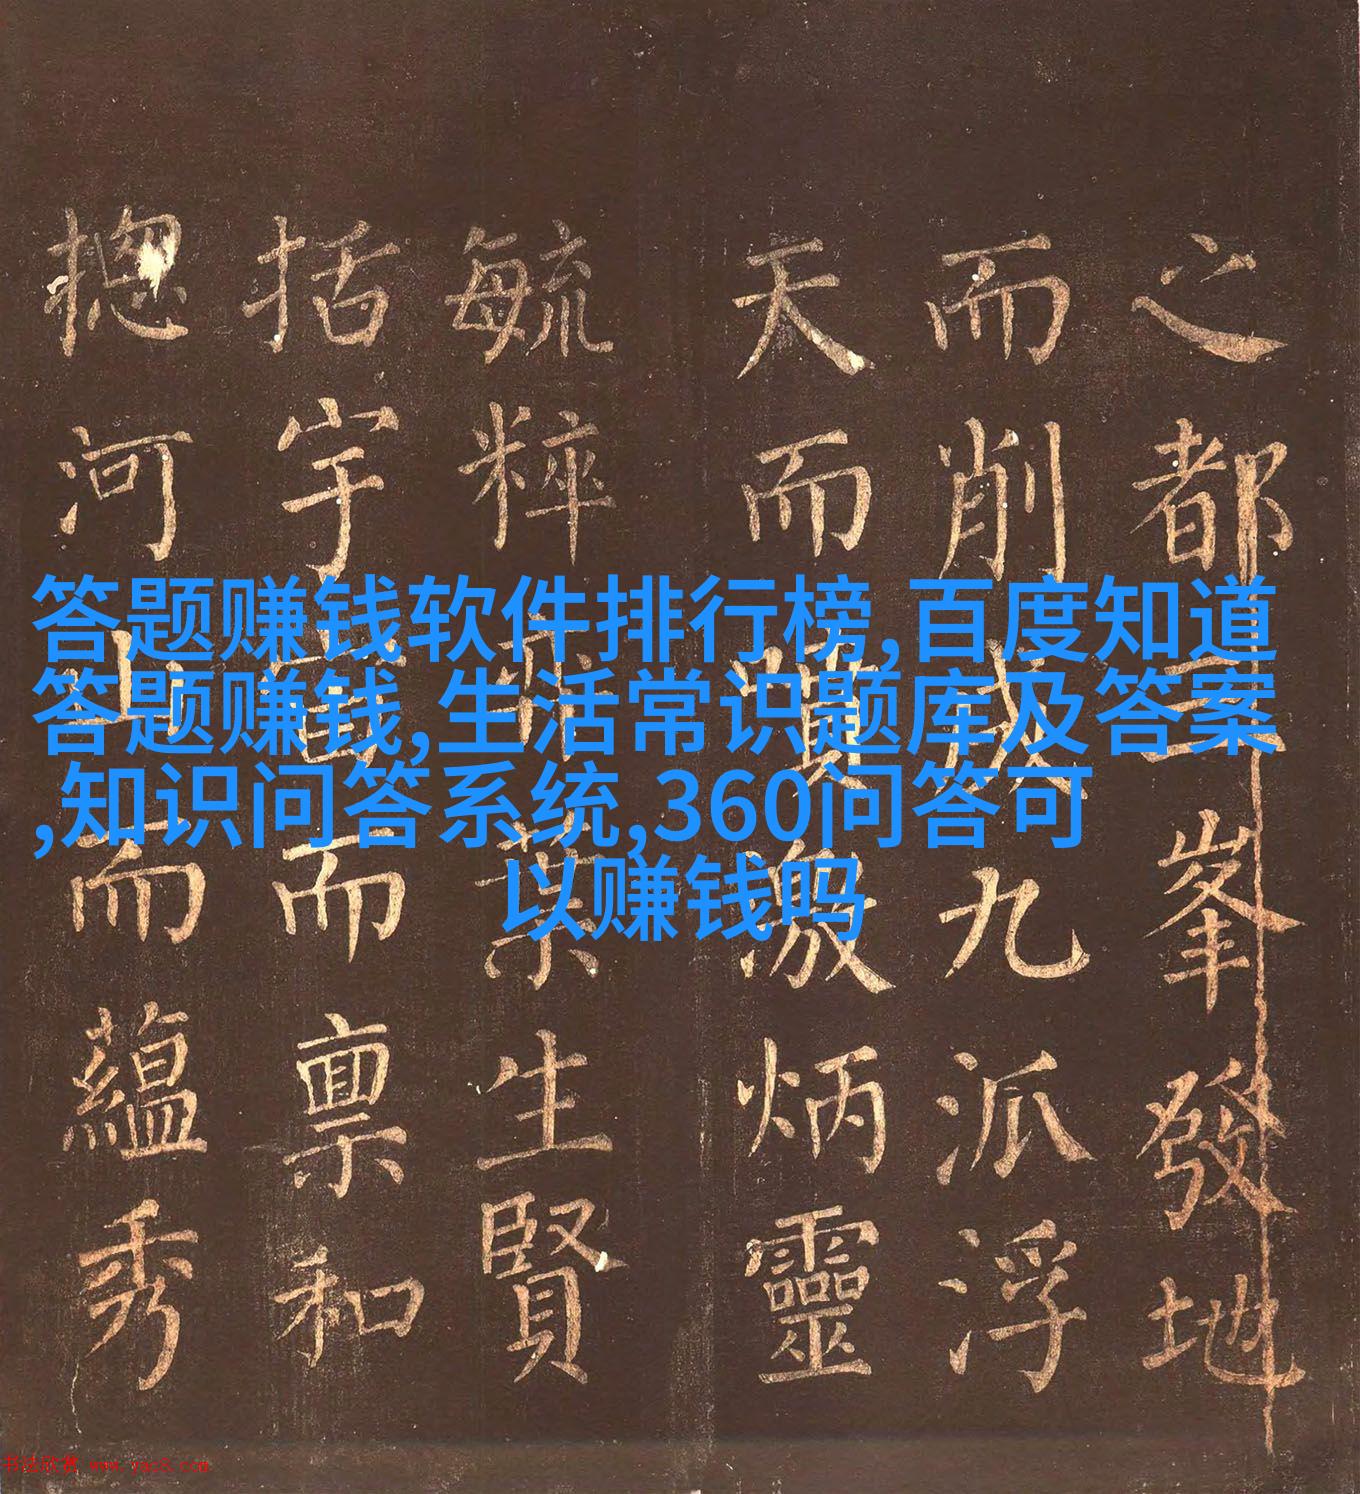 答题赚钱软件排行榜,百度知道
答题赚钱,生活常识题库及答案
,知识问答系统,360问答可
以赚钱吗
之都三峯發地
而削成九派浮
天而噴激炳靈
毓粹葉生賢
括宇宙而禀和
揔河山而蘊秀
书法欣赏 www.yac8.com